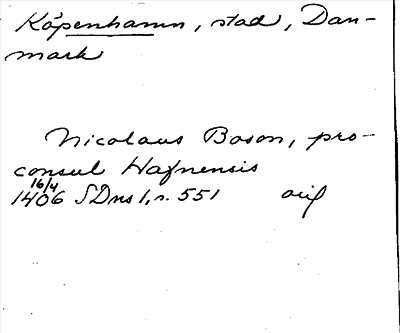 Köpenhamn, stad, Dan-
mark
Nicolaus Boson, pro-
consul Hafnensis
16/4
1406 SDns 1, n. 551 orig